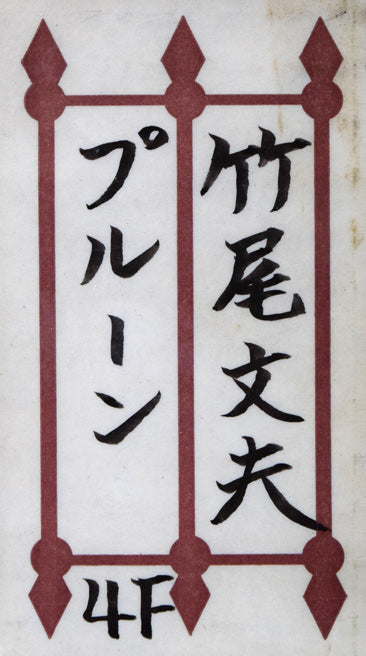 竹尾文夫
プルーン
4F